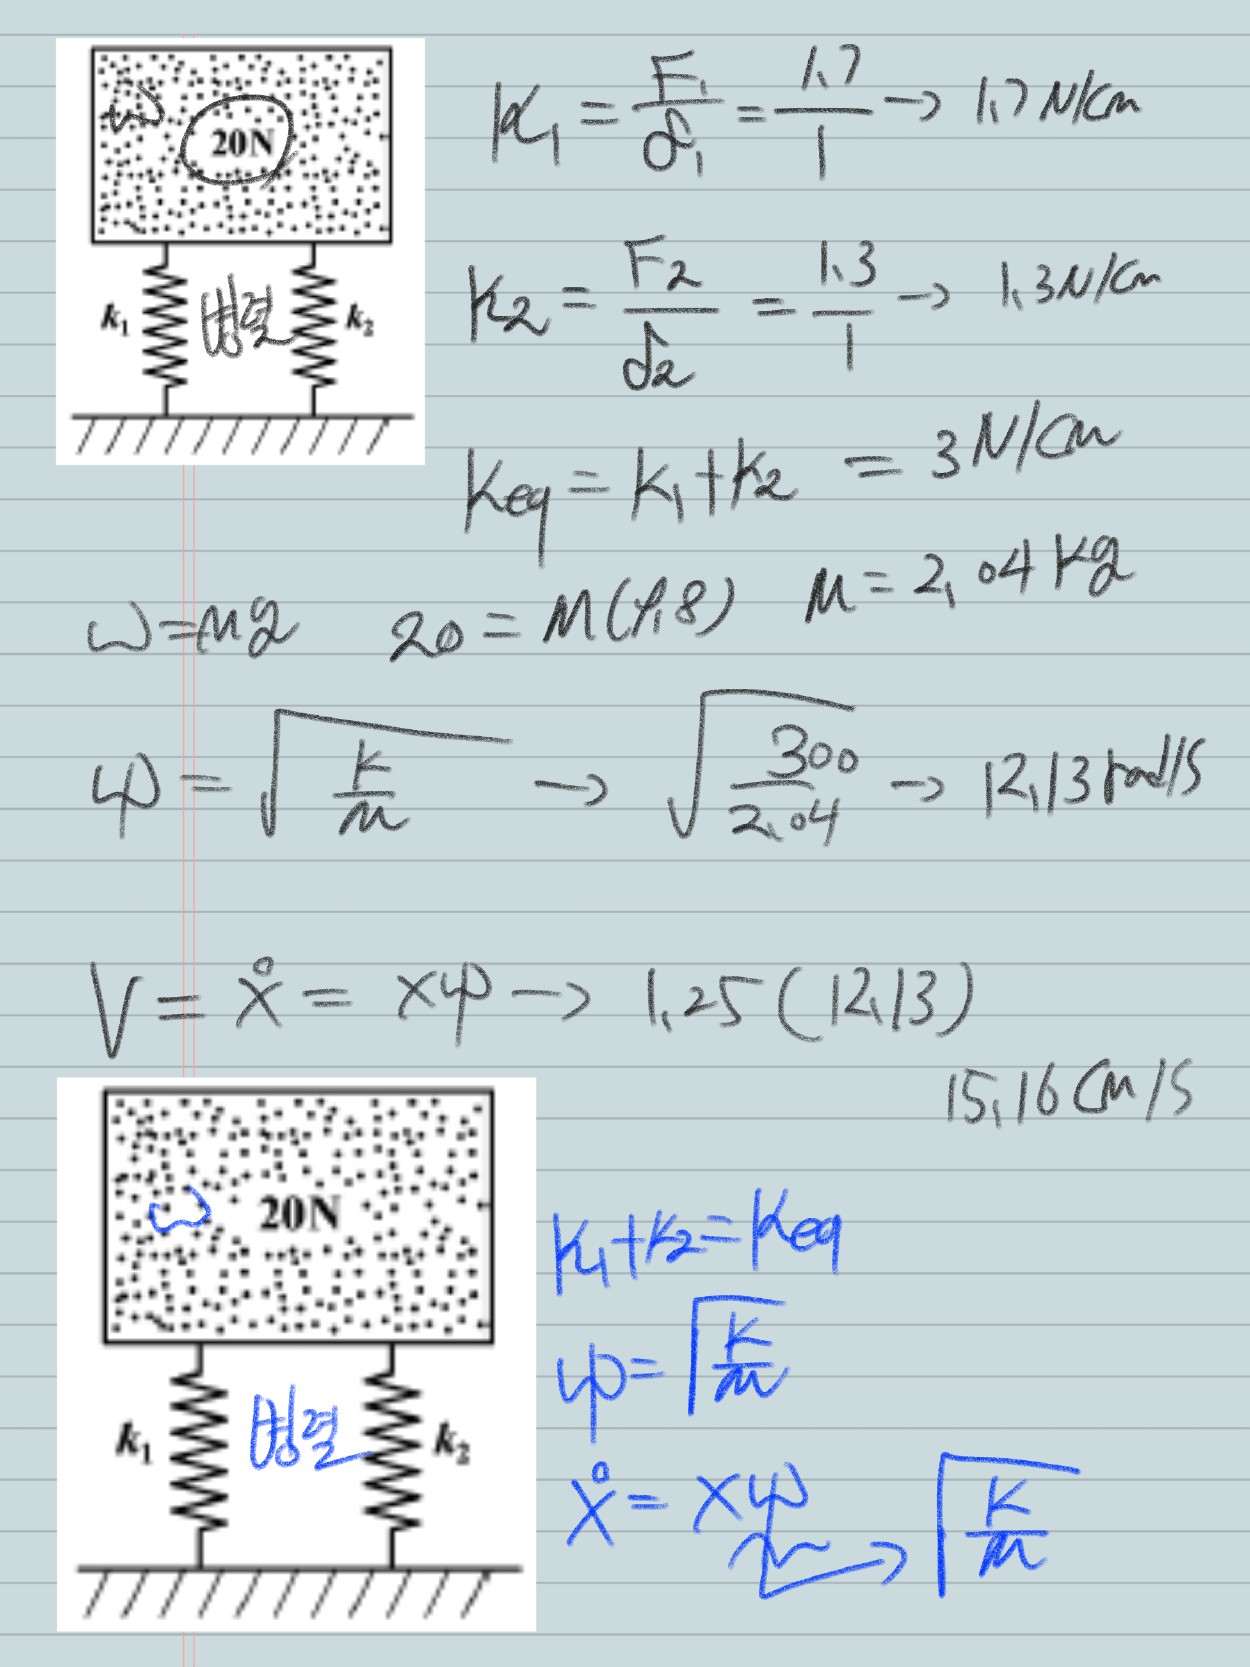 ω 20N
k₁ 병렬 k₂
K₁ = F₁/δ₁ = 1.7/1 → 1.7 N/cm
K₂ = F₂/δ₂ = 1.3/1 → 1.3 N/cm
Keq = K₁ + K₂ = 3 N/cm
ω = mg 20 = M(9.8) M = 2.04 kg
φ = √(K/m) → √(300/2.04) → 12.13 rad/s
V = ẋ = xφ → 1.25 (12.13)
15.16 cm/s
ω 20N
k₁ 병렬 k₂
K₁ + K₂ = Keq
φ = √(K/m)
ẋ = xφ → √(K/m)